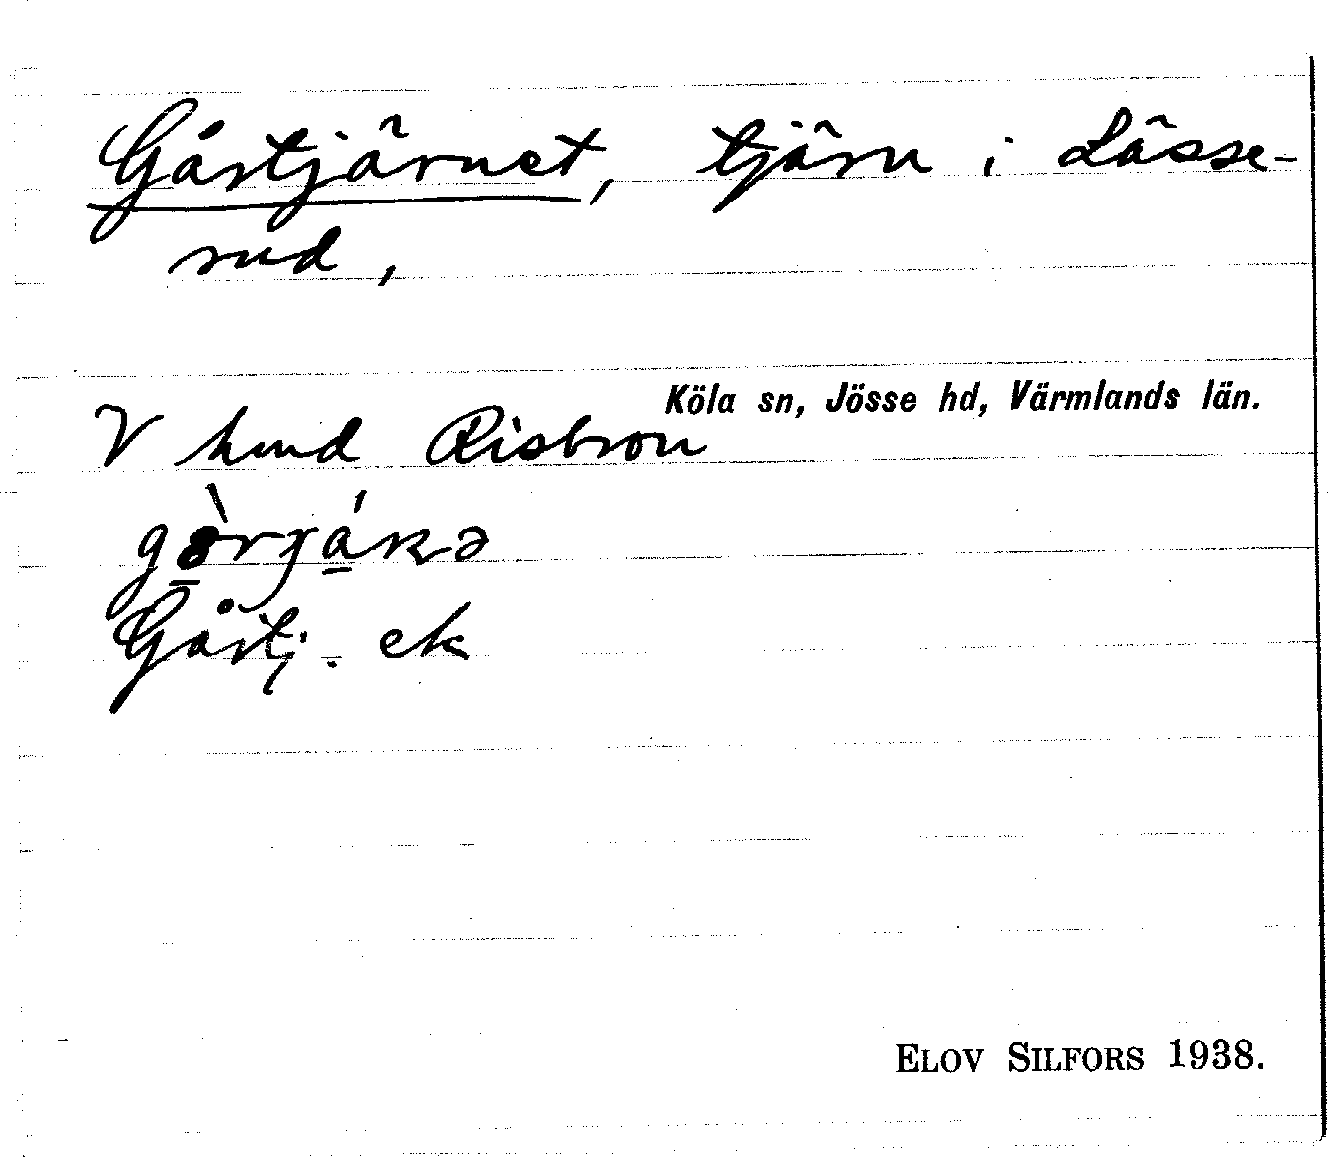 Gårtjärnet, tjärn i Lässe-
rud,
Köla sn, Jösse hd, Värmlands län.
V hmd Ristron
Gårtj. ek
ELOV SILFORS 1938.